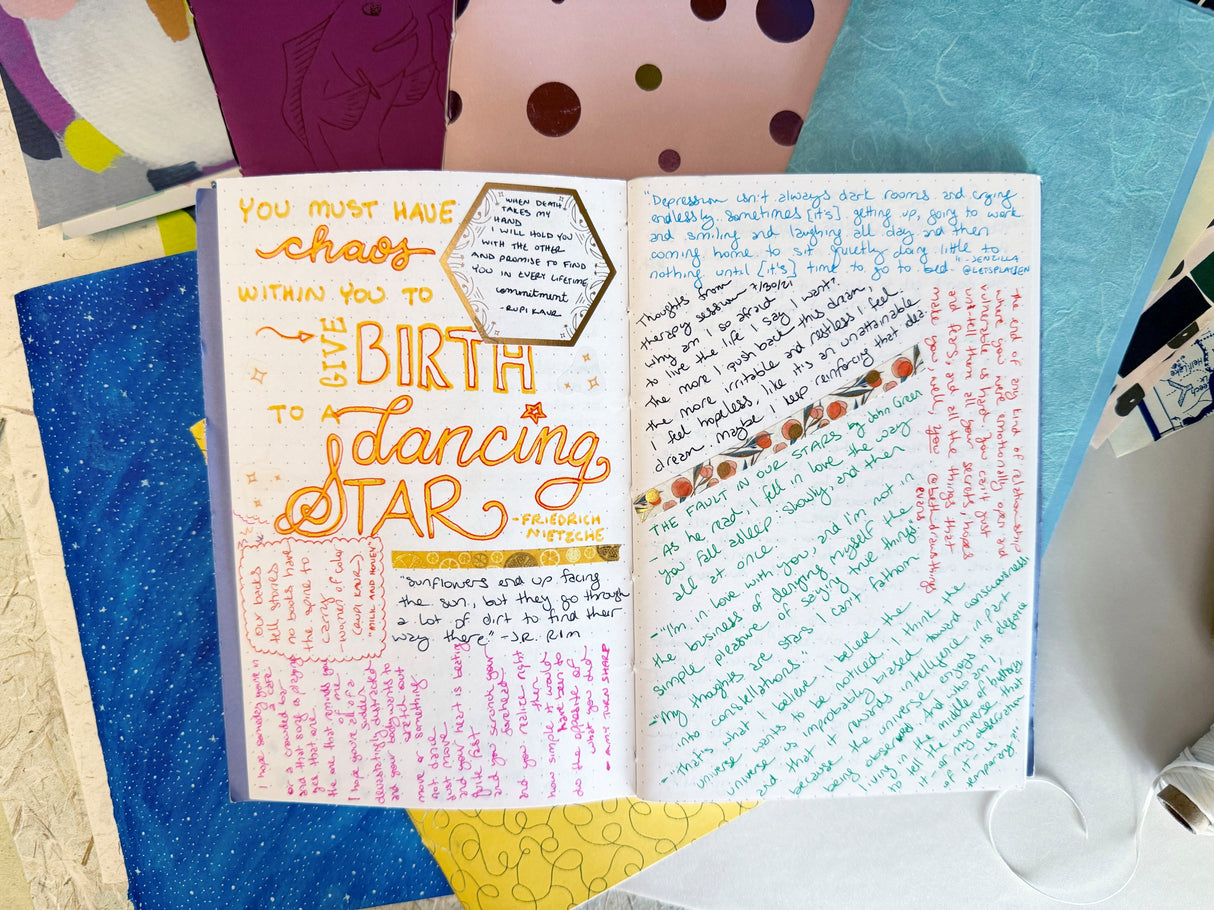 YOU MUST HAVE
chaos
WITHIN YOU TO
GIVE
BIRTH
TO A
dancing
STAR
-FRIEDRICH
NIETZCHE
WHEN DEATH
TAKES MY
HAND
I WILL HOLD YOU
WITH THE OTHER
AND PROMISE TO FIND
YOU IN EVERY LIFETIME
commitment
-RUPI KAUR
our backs
tell stories
no books have
the spine to
carry
-women of color
(RUPI KAUR)
"MILK AND HONEY"
"Sunflowers end up facing
the sun, but they go through
a lot of dirt to find their
way there." -J.R. RIM
I hope someday you're in
a cafe
or a crowded bar
and that song is playing
yes that one
the one that reminds you
of me
I hope you're all of a
sudden
devastatingly distracted
and your body wants to
stretch out
move or something
not dance
just move
and your heart is beating
quite fast
and you scrunch your
forehead
and you realize right
then
how simple it would
have been to
do the opposite of
what you did
- AMY TURN SHARP
"Depression isn't always dark rooms and crying
endlessly. sometimes [it's] getting up, going to work
and smiling and laughing all day and then
coming home to sit quietly doing little to
nothing until [it's] time to go to bed." -JENZILLA
@LETSPLAYJEN
Thoughts from
therapy session 7/30/21
why am I so afraid
to live the life I say I want?
The more I push back this dream,
the more irritable and restless I feel.
I feel hopeless, like it's an unattainable
dream. Maybe I keep reinforcing that idea.
-the end of any kind of relationship
where you were emotionally open and
vulnerable is hard. you can't just
un-tell them all your secrets, hopes
and fears, and all the things that
make you, well, you
THE FAULT IN OUR STARS by John Green
- As he read, I fell in love the way
you fall asleep: slowly, and then
all at once.
- "I'm in love with you, and I'm not in
the business of denying myself the
simple pleasure of saying true things"
- "My thoughts are stars I can't fathom
into constellations."
- "That's what I believe. I believe the
universe wants to be noticed. I think the
universe is improbably biased toward consciousness
and that it rewards intelligence in part
because the universe enjoys its elegance
being observed. And who am I,
living in the middle of history,
to tell the universe that
it - or my observation
of it - is
temporary?"